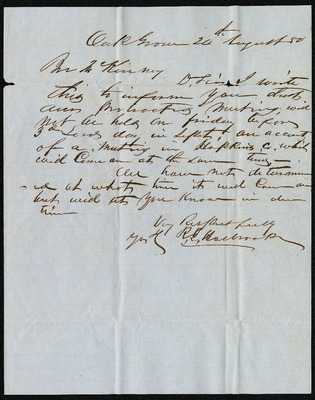 Oak Grove 24th August 50
Bro McKinny
D. Sir I write
this to inform you that
our protracted Meeting will
not be held on friday before
3rd Lords day in Sept. on account
of a Meeting in Hopkins c. which
will Come on at the same time.
We have not determin
-ed at what time it will Come on
but will let you Know in due
time
Very Respectfully
yrs